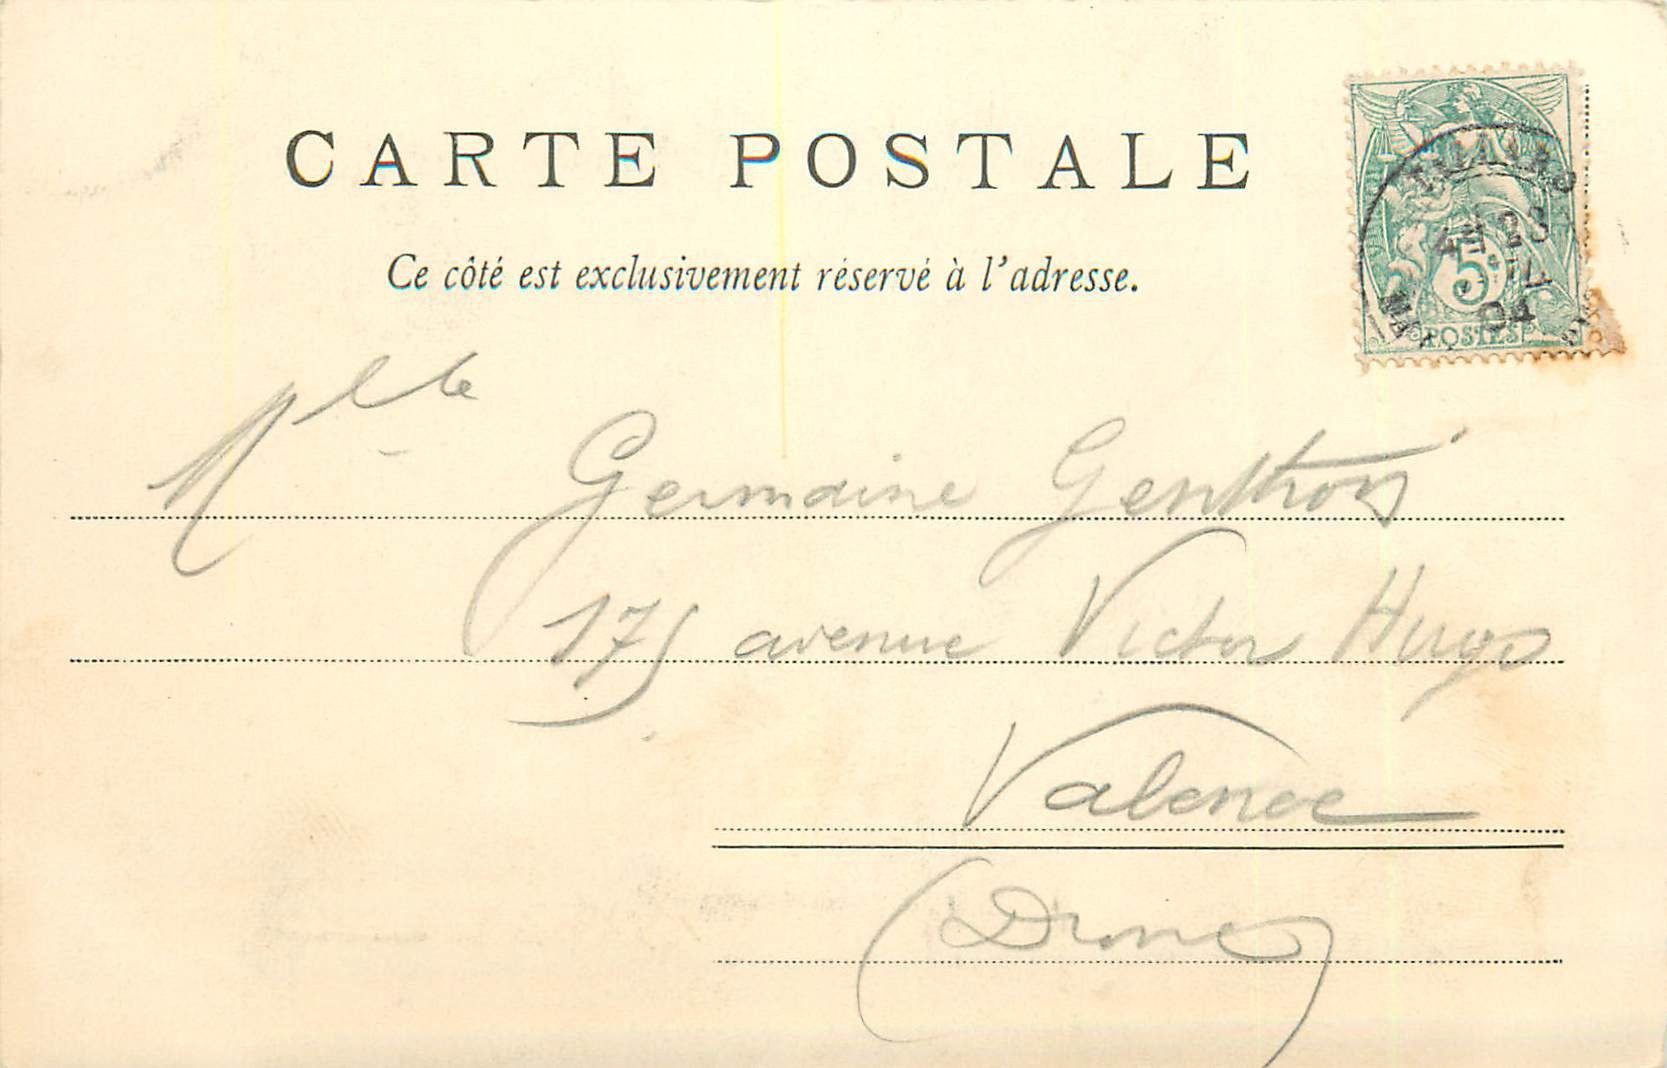 CARTE POSTALE
Ce côté est exclusivement réservé à l'adresse.
5
POSTES
04
Mlle Germaine Genthon
175 avenue Victor Hugo
Valence
(Drome)